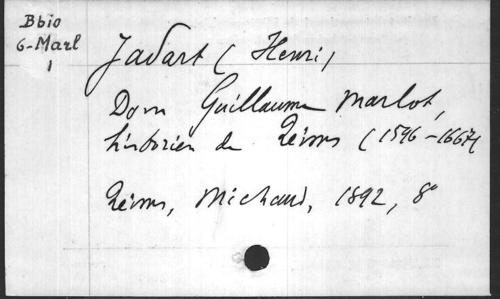 Bbio
6-Marl
1
Jadart (Henri)
Dom Guillaume Marlot,
historien de Reims (1596-1667)
Reims, Michaud, 1892, 8°